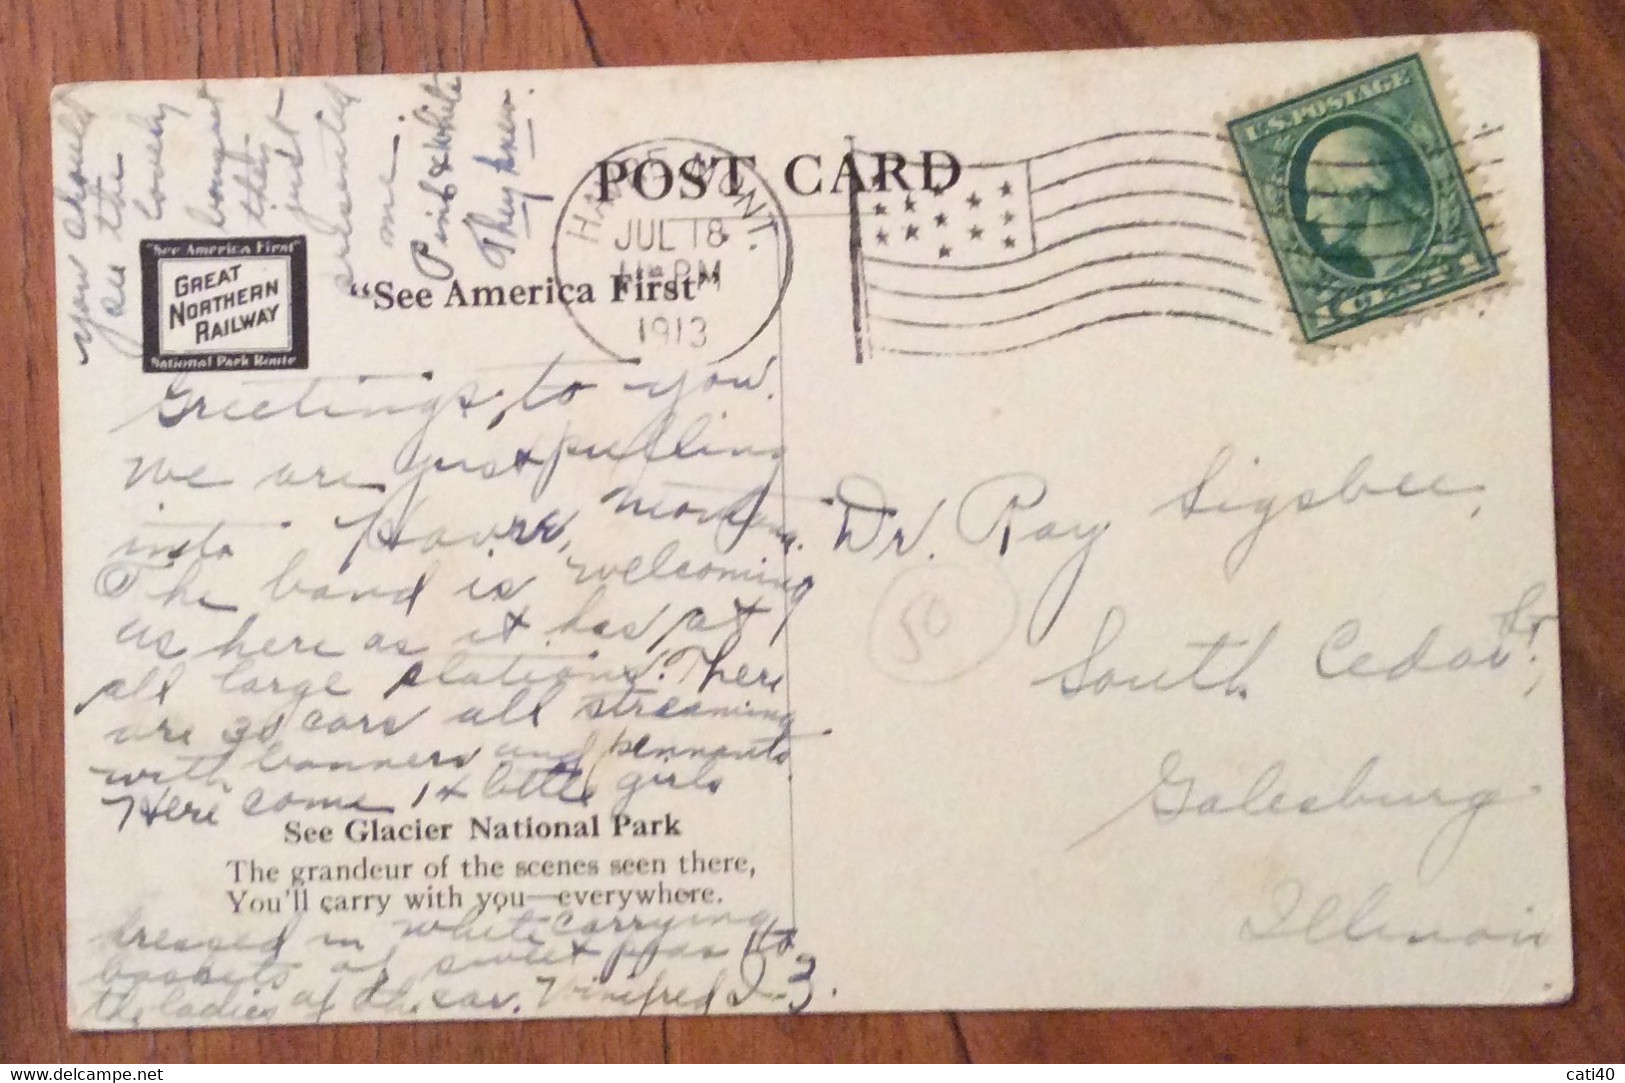 you should
see the
lovely
bouquet
they
just
presented
me.
Pink & White
They knew.
POST CARD
HAVRE, MONT.
JUL 18
11 PM
1913
U.S. POSTAGE
1 CENT 1
"See America First"
GREAT
NORTHERN
RAILWAY
National Park Route
"See America First"
Greetings to you.
We are just pulling
into Havre, Montana.
The band is welcoming
us here as it has at
all large stations. There
are 30 cars all streaming
with banners and pennants.
Here come 14 little girls
See Glacier National Park
The grandeur of the scenes seen there,
You'll carry with you—everywhere.
dressed in white carrying
baskets of sweet peas to
the ladies of the car. Winifred
Dr. Ray Sigsbee,
South Cedar St,
Galesburg
Illinois.
50
delcampe.net
cati40